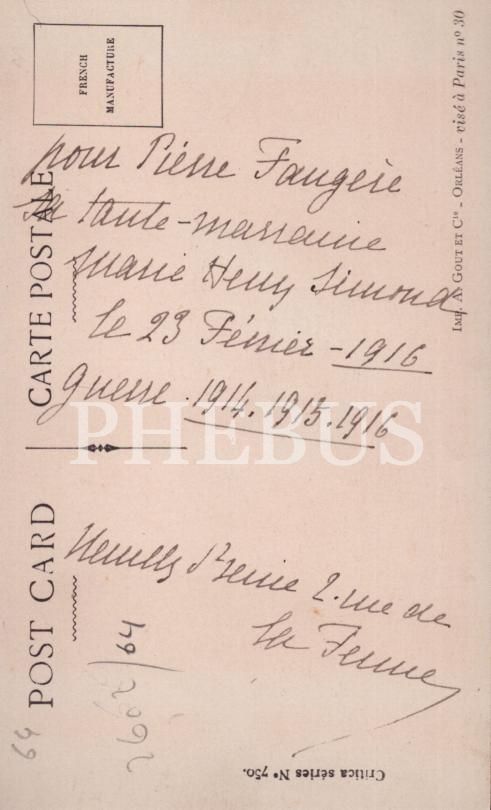 FRENCH
MANUFACTURE
CARTE POSTALE
POST CARD
pour Pierre Faugère
sa tante-marraine
Marie Henry Simond
le 23 Février - 1916
guerre 1914.1915.1916
Neuilly s/Seine 2. rue de
la Ferme
64
2602/64
Critica séries Nº 750.
IMP. A. GOUT ET Cie - ORLÉANS - visé à Paris nº 30
PHEBUS